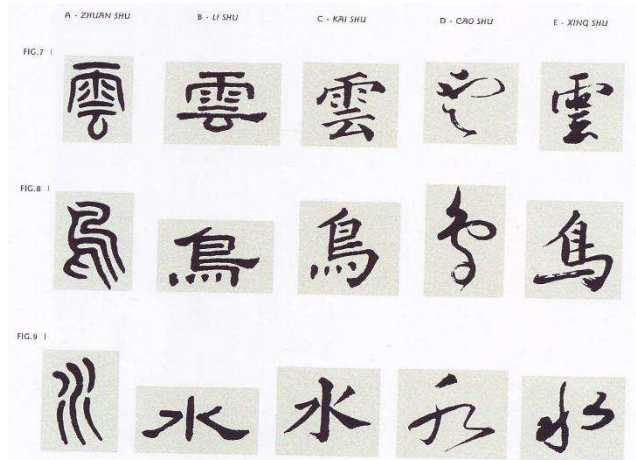 A - ZHUAN SHU B - LI SHU C - KAI SHU D - CAO SHU E - XING SHU
FIG.7
雲 雲 雲 雲 雲
FIG.8
鳥 鳥 鳥 鳥 鳥
FIG.9
水 水 水 水 水